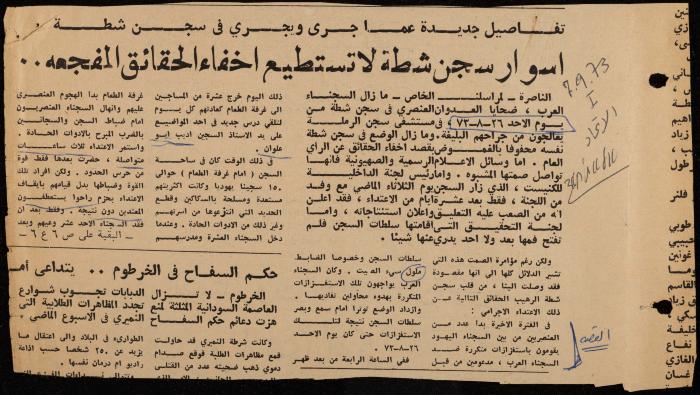 تفاصيل جديدة عما جرى ويجري في سجن شطة
اسوار سجن شطة لا تستطيع اخفاء الحقائق المفجعه..
7.9.73
I
الاتحاد
الناصرة - لمراسلنا الخاص - ما زال السجناء
العرب، ضحايا العدوان العنصري في سجن شطة من
يوم الاحد ٢٦-٨-٧٣، في مستشفى سجن الرملة
يعالجون من جراحهم البليغة. وما زال الوضع في سجن شطة
نفسه محفوفا بالغموض بقصد اخفاء الحقائق عن الراي
العام. اما وسائل الاعلام الرسمية والصهيونية فانها
تواصل صمتها المشبوه. واما رئيس لجنة الداخلية
للكنيست، الذي زار السجن يوم الثلاثاء الماضي مع وفد
من اللجنة، فقط بعد عشرة ايام من الاعتداء، فقد اعلن
انه من الصعب عليه التعليق واعلان استنتاجاته، واما
لجنة التحقيق التي اقامتها سلطات السجن فلم
تفتح فمها بعد ولا احد يدري عنها شيئا.
ولكن رغم مؤامرة الصمت هذه التي
تشير الدلائل كلها الى انها مقصودة
فقد وصلت الينا، من قلب سجن
شطة الرهيب الحقائق التالية عن
ذلك الاعتداء الاجرامي:
في الفترة الاخيرة بدا عدد من
العنصريين من بين السجناء اليهود
يقومون باستفزازات متكررة ضد
السجناء العرب، مدعومين من قبل
سلطات السجن وخصوصا الضابط
ملول سيء الصيت. وكان السجناء
العرب يواجهون تلك الاستفزازات
المتكررة بهدوء محاولين تفاديها.
وازداد الوضع توترا امام سمع وبصر
سلطات السجن نتيجة لتلك
الاستفزازات حتى كان يوم الاحد
٢٦-٨-٧٣.
ففي الساعة الرابعة من بعد ظهر
ذلك اليوم خرج عشرة من المساجين
الى غرفة الطعام كعادتهم كل يوم
لتلقي درس جديد في احد المواضيع
على يد الاستاذ السجين اديب ابو
علوان.
في ذلك الوقت كان في ساحة
السجن (امام غرفة الطعام) حوالي
١٥٠ سجينا يهوديا وكانت اكثريتهم
مستعدة ومسلحة بالسكاكين وقطع
الحديد التي انتزعوها من اسرتهم
وغير ذلك من الادوات الحادة. وعندما
دخل السجناء العشرة ومدرسهم
غرفة الطعام بدا الهجوم العنصري
عليهم وانهال السجناء العنصريون
امام ضباط السجن والسجانين
بالضرب المبرح بالادوات الحادة.
واستمر الاعتداء ثلاث ساعات
متواصلة، حضرت بعدها فقط قوة
من حرس الحدود. ولكن افراد تلك
القوة وضباطها بدل قيامهم بايقاف
الاعتداء بحزم راحوا يستعطفون
المعتدين دون نتيجة. وفقط بعد ان
فقد السجناء الاحد عشر وعيهم وبعد
- البقية على ص ٦ ع ٦ -
القصة
حكم السفاح في الخرطوم .. يتداعى
الخرطوم - لا تزال
العاصمة السودانية المثلثة لمتع
هزت دعائم حكم السفاح
الدبابات تجوب شوارع
تجدد المظاهرات الطلابية التي
النميري في الاسبوع الماضي.
وكانت شرطة النميري قد حاولت
قمع مظاهرات الطلبة فوقع صدام
دموي ذهب ضحيته عشرات من
الطوارىء في البلاد والى اعتقال ما
يزيد عن ٢٥٠ شخصا حسب اذاعة
راديو ام درمان نفسه.